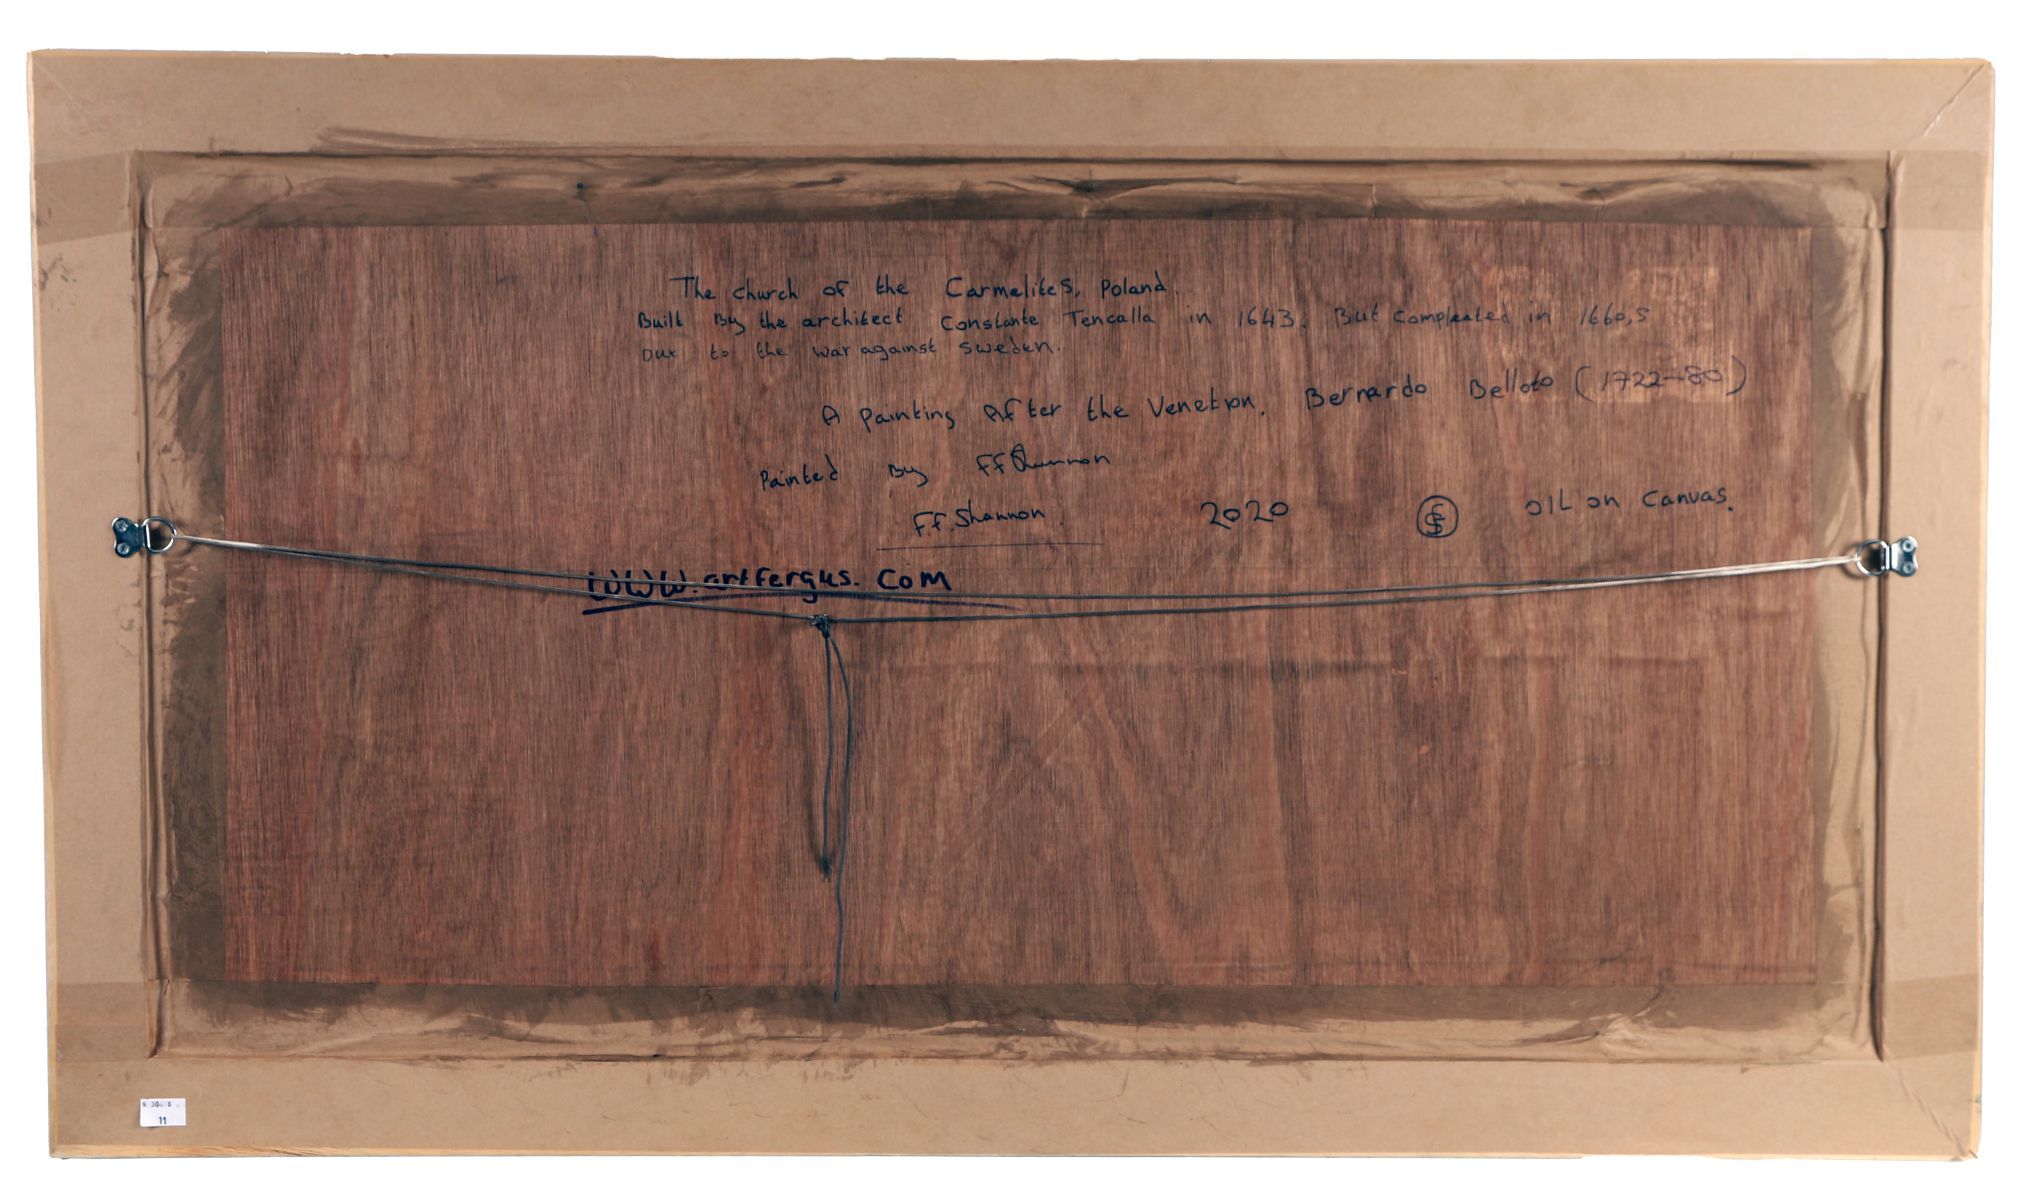 The church of the Carmelites, Poland.
Built By the architect Constante Tencalla in 1643. But compleated in 1660,s
Due to the war against Sweden.
A painting After the Venetion, Bernardo Belloto (1722-80)
Painted By FF Shannon
F.F. Shannon 2020 OIL on Canvas.
www.artfergus.com
11